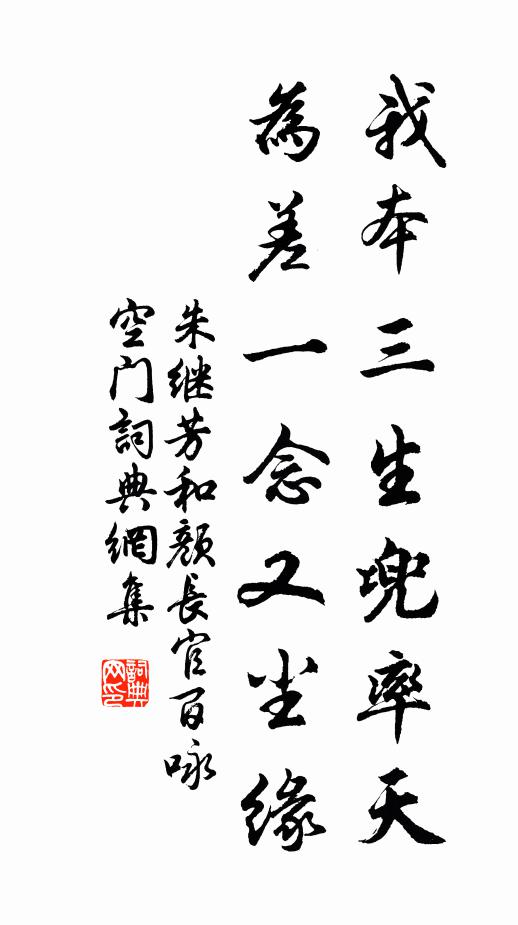 我本三生兜率天
為差一念又尘緣
朱继芳和顏長官百咏
空门詞典網集
詞典网印